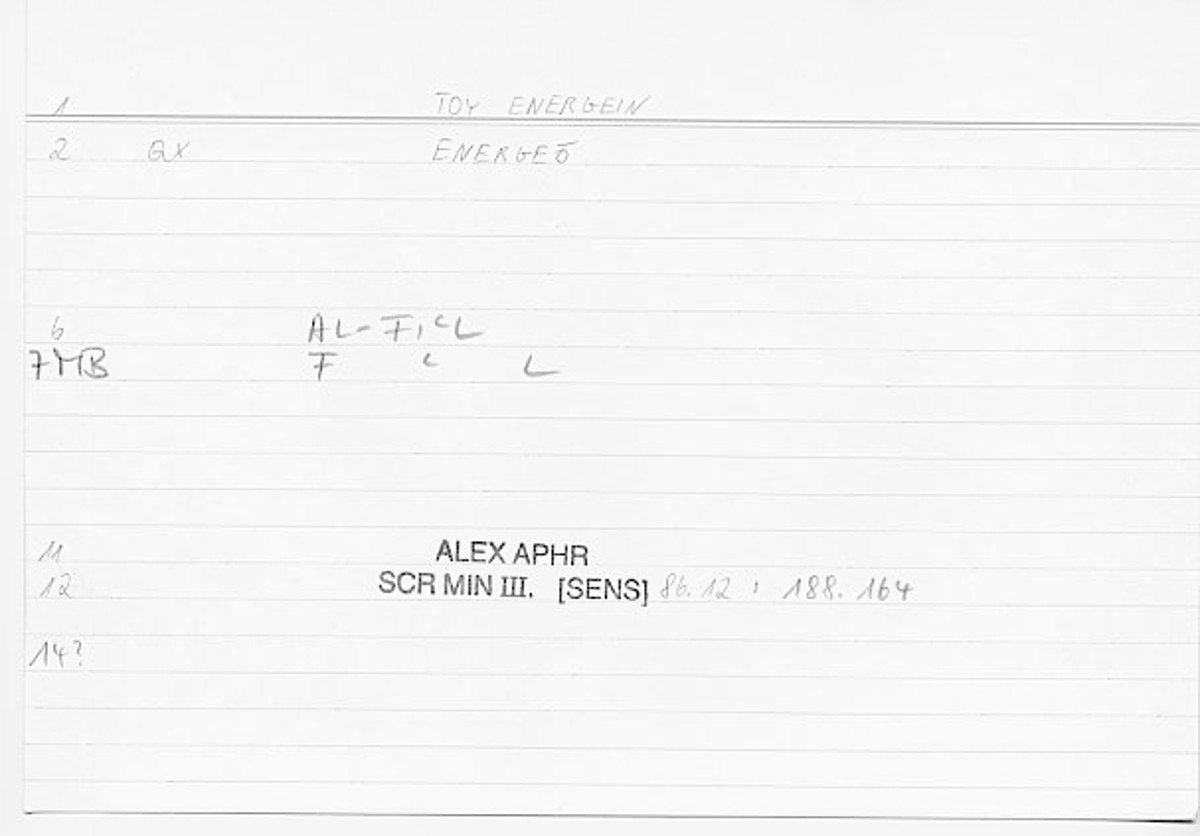 1 TOY ENERGEIN
2 GX ENERGEŌ
6 AL-FIʿL
7MB F ʿ L
11 ALEX APHR
12 SCR MIN III, [SENS] 86.12 : 188.164
14?